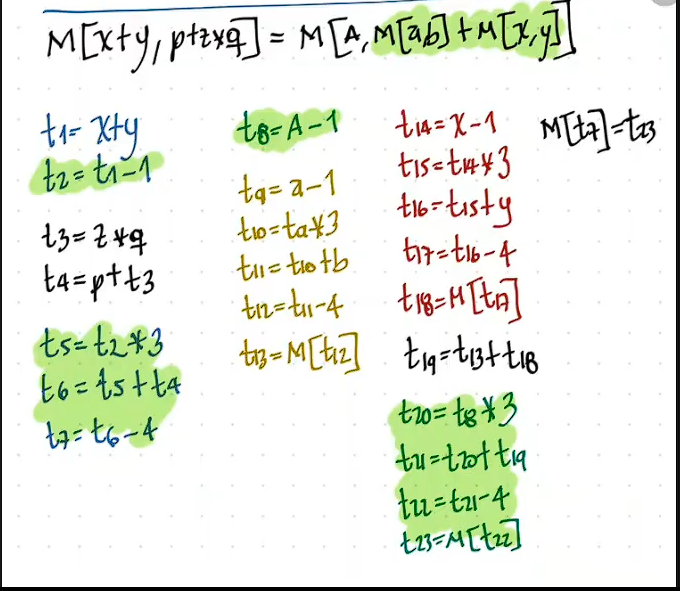 M[x+y, p+z*q] = M[A, M[ab] + M[x,y]]
t1= x+y
t2= t1-1
t3= z*q
t4= p+t3
t5= t2*3
t6= t5+t4
t7= t6-4
t8= A-1
t9= a-1
t10= ta*3
t11= t10+b
t12= t11-4
t13= M[t12]
t14= x-1
t15= t14*3
t16= t15+y
t17= t16-4
t18= M[t17]
t19= t13+t18
t20= t8*3
t21= t20+t19
t22= t21-4
t23= M[t22]
M[t7]=t23